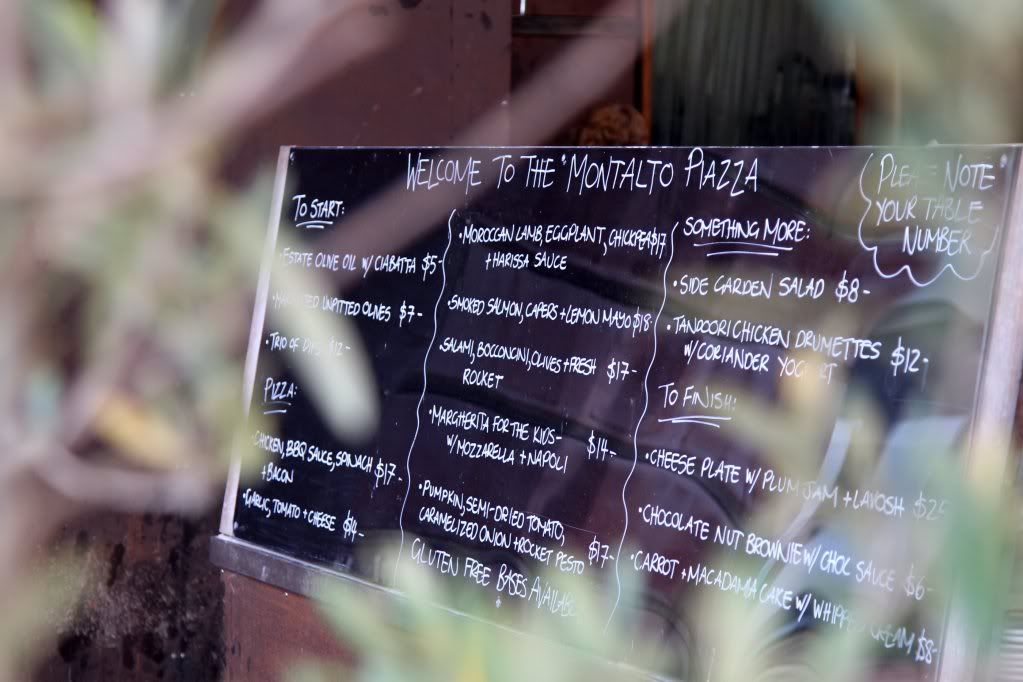 WELCOME TO THE "MONTALTO PIAZZA"
PLEASE NOTE
YOUR TABLE
NUMBER
TO START:
• ESTATE OLIVE OIL W/ CIABATTA $5-
UNPITTED OLIVES $7-
• TRIO OF DIPS $12-
PIZZA:
• CHICKEN, BBQ SAUCE, SPINACH $17-
+ BACON
• GARLIC, TOMATO + CHEESE $14-
• MOROCCAN LAMB, EGGPLANT, CHICKPEA $17
+ HARISSA SAUCE
• SMOKED SALMON, CAPERS + LEMON MAYO $18-
• SALAMI, BOCCONCINI, OLIVES + FRESH $17-
ROCKET
• MARGHERITA FOR THE KIDS-
W/ MOZZARELLA + NAPOLI $14-
• PUMPKIN, SEMI-DRIED TOMATO,
CARAMELIZED ONION + ROCKET PESTO $17-
GLUTEN FREE BASES AVAILABLE
SOMETHING MORE:
• SIDE GARDEN SALAD $8-
• TANDOORI CHICKEN DRUMETTES $12-
W/ CORIANDER YOGURT
TO FINISH:
• CHEESE PLATE W/ PLUM JAM + LAVOSH
• CHOCOLATE NUT BROWNIE W/ CHOC SAUCE $6-
• CARROT + MACADAMIA CAKE W/ WHIPPED CREAM $8-